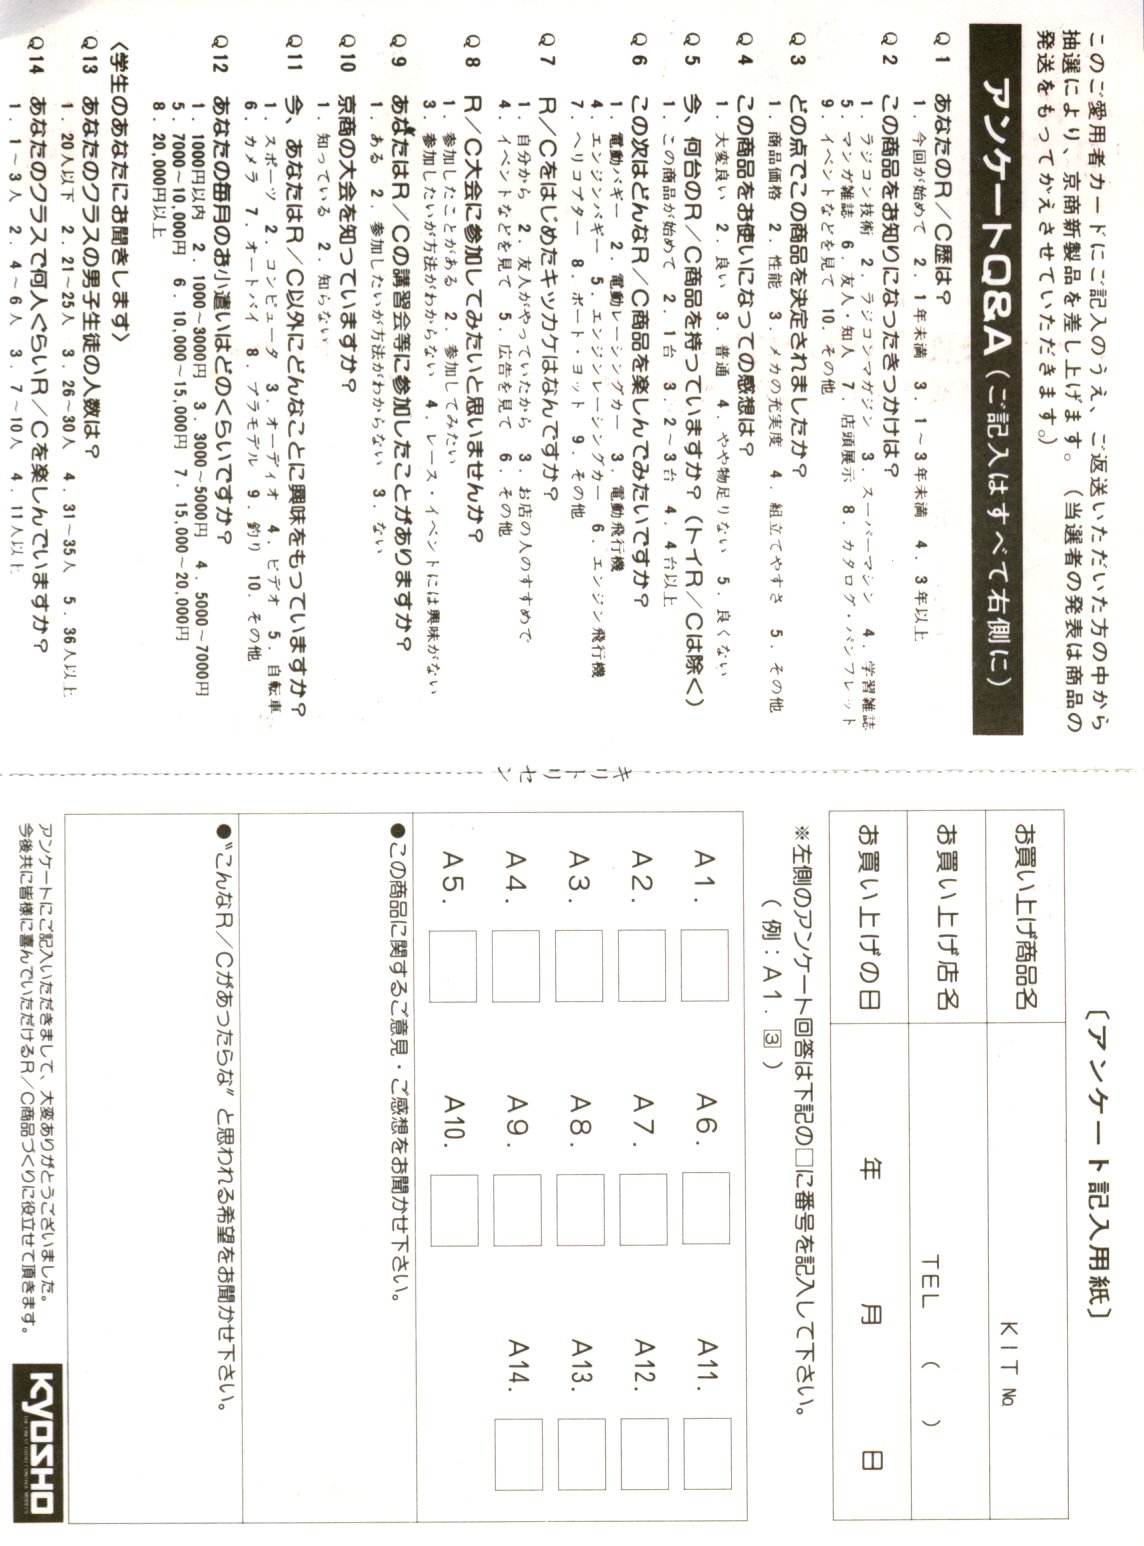 このご愛用者カードにご記入のうえ、ご返送いただいた方の中から
抽選により、京商新製品を差し上げます。（当選者の発表は商品の
発送をもってかえさせていただきます。）
アンケートQ&A（ご記入はすべて右側に）
Q1 あなたのR／C歴は？
1．今回が始めて 2．1年未満 3．1～3年未満 4．3年以上
Q2 この商品をお知りになったきっかけは？
1．ラジコン技術 2．ラジコンマガジン 3．スーパーマシン 4．学習雑誌
5．マンガ雑誌 6．友人・知人 7．店頭展示 8．カタログ・パンフレット
9．イベントなどを見て 10．その他
Q3 どの点でこの商品を決定されましたか？
1．商品価格 2．性能 3．メカの充実度 4．組立てやすさ 5．その他
Q4 この商品をお使いになっての感想は？
1．大変良い 2．良い 3．普通 4．やや物足りない 5．良くない
Q5 今、何台のR／C商品を持っていますか？（トイR／Cは除く）
1．この商品が始めて 2．1台 3．2～3台 4．4台以上
Q6 この次はどんなR／C商品を楽しんでみたいですか？
1．電動バギー 2．電動レーシングカー 3．電動飛行機
4．エンジンバギー 5．エンジンレーシングカー 6．エンジン飛行機
7．ヘリコプター 8．ボート・ヨット 9．その他
Q7 R／Cをはじめたキッカケはなんですか？
1．自分から 2．友人がやっていたから 3．お店の人のすすめで
4．イベントなどを見て 5．広告を見て 6．その他
Q8 R／C大会に参加してみたいと思いませんか？
1．参加したことがある 2．参加してみたい
3．参加したいが方法がわからない 4．レース・イベントには興味がない
Q9 あなたはR／Cの講習会等に参加したことがありますか？
1．ある 2．参加したいが方法がわからない 3．ない
Q10 京商の大会を知っていますか？
1．知っている 2．知らない
Q11 今、あなたはR／C以外にどんなことに興味をもっていますか？
1．スポーツ 2．コンピュータ 3．オーディオ 4．ビデオ 5．自転車
6．カメラ 7．オートバイ 8．プラモデル 9．釣り 10．その他
Q12 あなたの毎月のお小遣いはどのくらいですか？
1．1000円以内 2．1000～3000円 3．3000～5000円 4．5000～7000円
5．7000～10,000円 6．10,000～15,000円 7．15,000～20,000円
8．20,000円以上
〈学生のあなたにお聞きします〉
Q13 あなたのクラスの男子生徒の人数は？
1．20人以下 2．21～25人 3．26～30人 4．31～35人 5．36人以上
Q14 あなたのクラスで何人ぐらいR／Cを楽しんでいますか？
1．1～3人 2．4～6人 3．7～10人 4．11人以上
キリトリセン
〔アンケート記入用紙〕
お買い上げ商品名 KIT №
お買い上げ店名 TEL （ ）
お買い上げの日 年 月 日
※左側のアンケート回答は下記の□に番号を記入して下さい。
（例：A1．3）
A1. A6. A11.
A2. A7. A12.
A3. A8. A13.
A4. A9. A14.
A5. A10.
●この商品に関するご意見・ご感想をお聞かせ下さい。
●〝こんなR／Cがあったらな〟と思われる希望をお聞かせ下さい。
アンケートにご記入いただきまして、大変ありがとうございました。
今後共に皆様に喜んでいただけるR／C商品づくりに役立せて頂きます。
KYOSHO
THE FINEST RADIO CONTROL MODELS